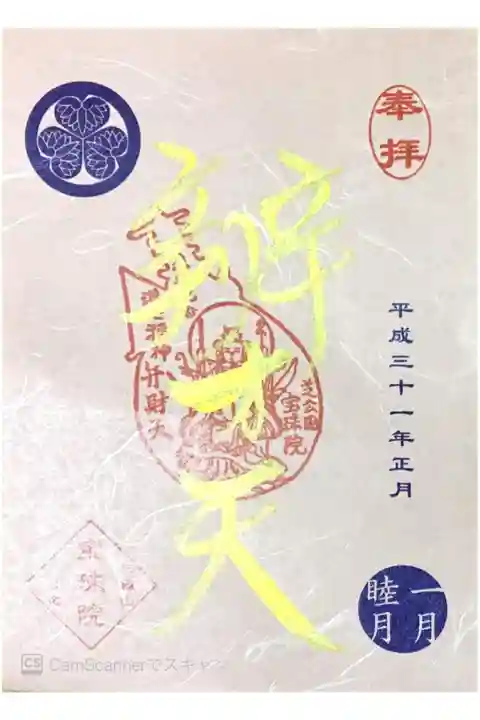 奉拝
平成三十一年正月
一月
睦月
辨才天
芝公園
宝珠院
弁財天
宝珠院
CS CamScannerでスキャン